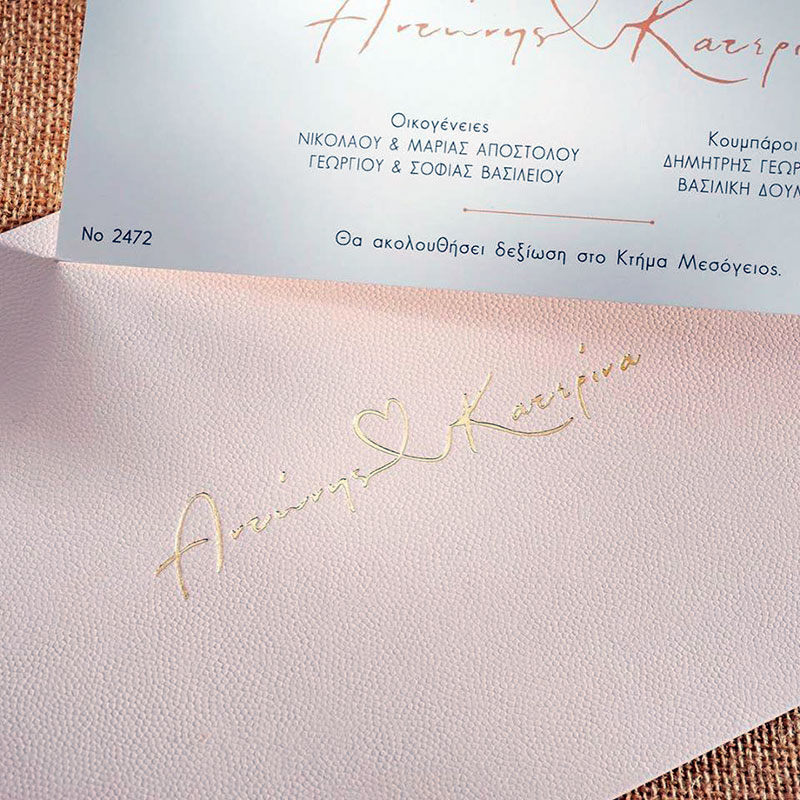 Αντώνης Κατερίνα
Οικογένειες
ΝΙΚΟΛΑΟΥ & ΜΑΡΙΑΣ ΑΠΟΣΤΟΛΟΥ
ΓΕΩΡΓΙΟΥ & ΣΟΦΙΑΣ ΒΑΣΙΛΕΙΟΥ
Κουμπάροι
ΔΗΜΗΤΡΗΣ
ΒΑΣΙΛΙΚΗ
Νο 2472
Θα ακολουθήσει δεξίωση στο Κτήμα Μεσόγειος.
Αντώνης Κατερίνα